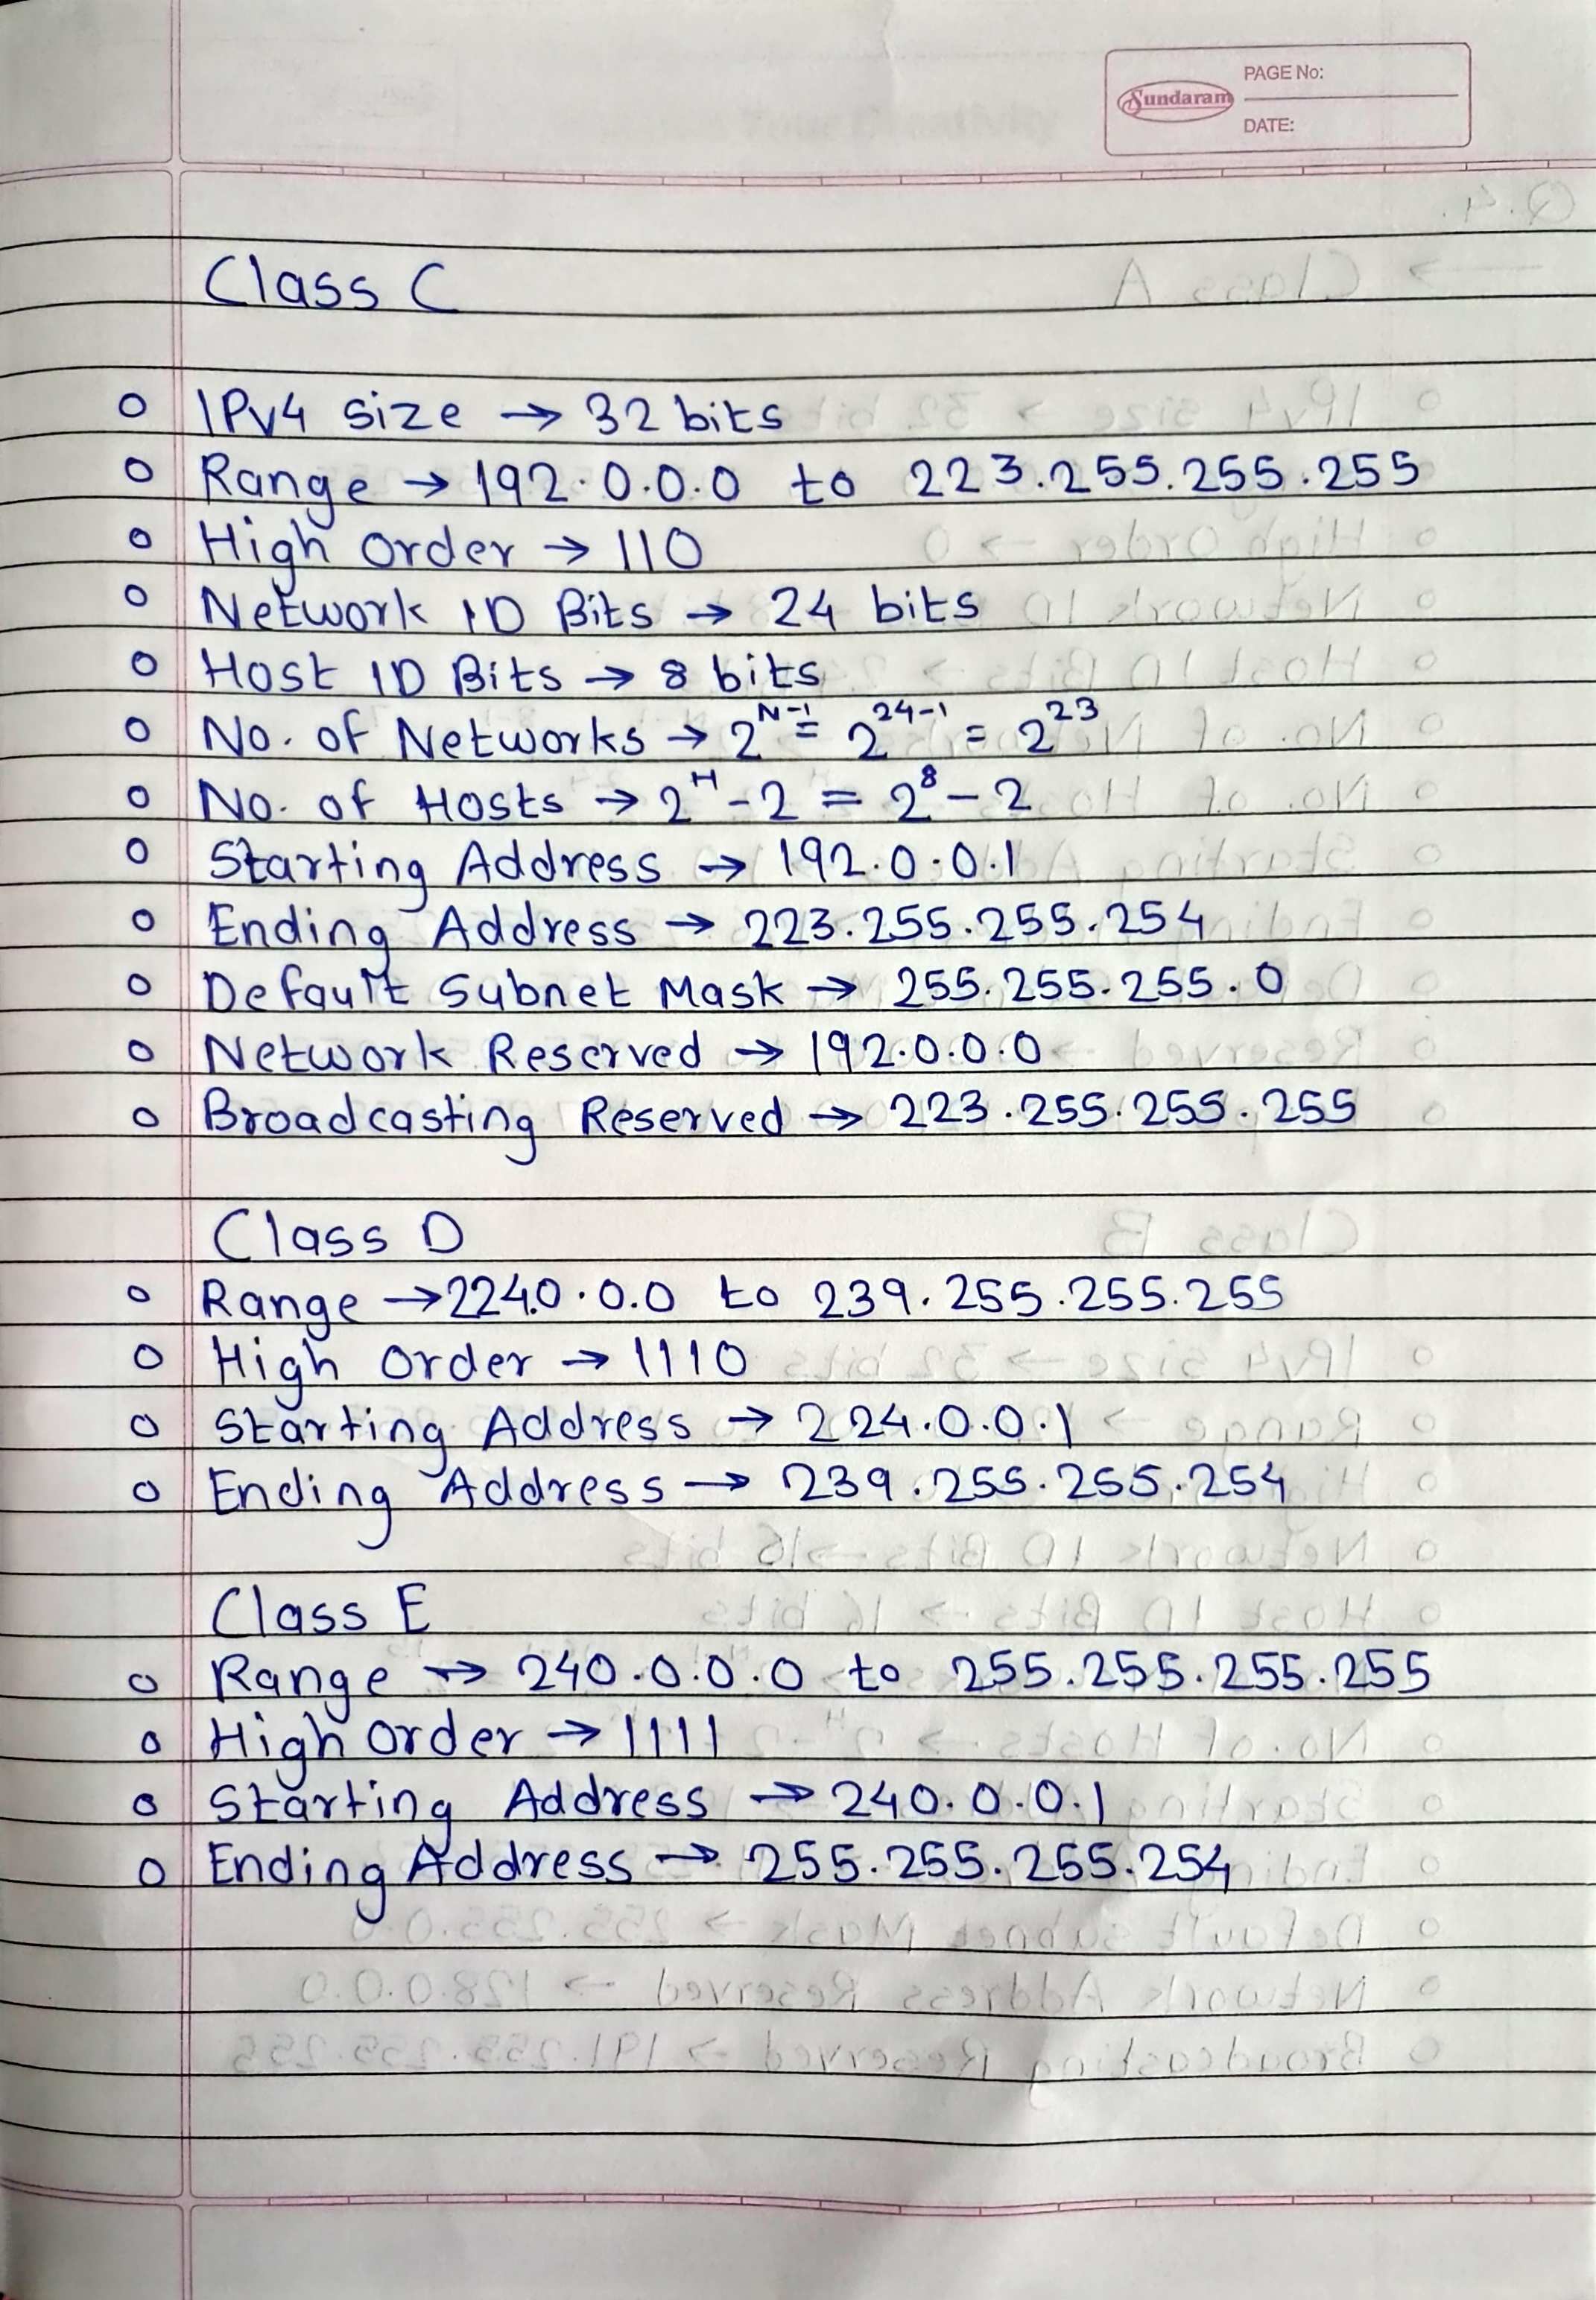 Sundaram
PAGE No:
DATE:
Class C
o IPv4 size → 32 bits
o Range → 192.0.0.0 to 223.255.255.255
o High Order → 110
o Network ID Bits → 24 bits
o Host ID Bits → 8 bits
o No. of Networks → 2^N-1 = 2^24-1 = 2^23
o No. of Hosts → 2^H - 2 = 2^8 - 2
o Starting Address → 192.0.0.1
o Ending Address → 223.255.255.254
o Default Subnet Mask → 255.255.255.0
o Network Reserved → 192.0.0.0
o Broadcasting Reserved → 223.255.255.255
Class D
o Range → 224.0.0.0 to 239.255.255.255
o High Order → 1110
o Starting Address → 224.0.0.1
o Ending Address → 239.255.255.254
Class E
o Range → 240.0.0.0 to 255.255.255.255
o High Order → 1111
o Starting Address → 240.0.0.1
o Ending Address → 255.255.255.254